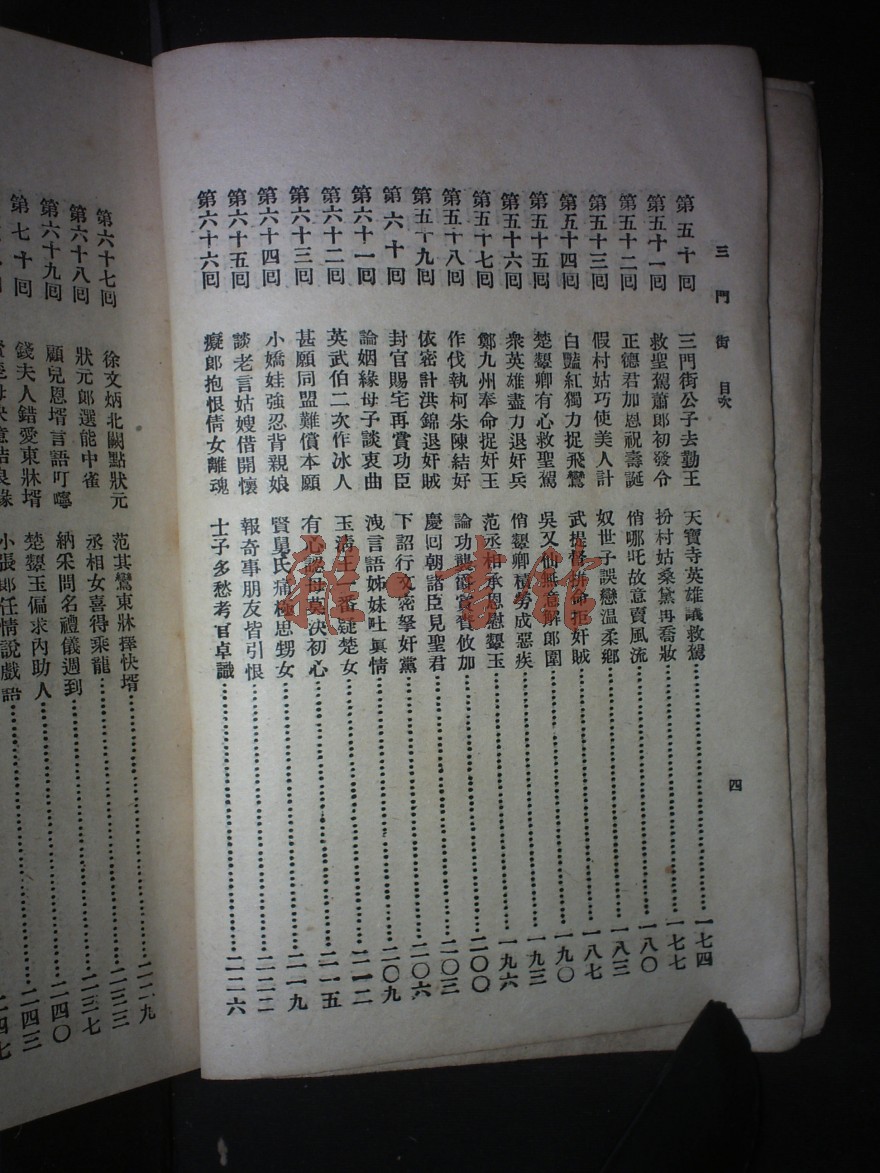 三門街 目次 四
第五十回 三門街公子去勤王 天寶寺英雄議救駕 一七四
第五十一回 救聖駕蕭郎初發令 扮村姑桑黛再喬妝 一七七
第五十二回 正德君加恩祝壽誕 俏哪吒故意賣風流 一八〇
第五十三回 假村姑巧使美人計 奴世子誤戀溫柔鄉 一八三
第五十四回 白豔紅獨力捉飛鸞 武提督拚命拒奸賊 一八七
第五十五回 楚顰卿有心救聖駕 吳又仙無意解郎圍 一九〇
第五十六回 衆英雄盡力退奸兵 俏顰卿積勞成惡疾 一九三
第五十七回 鄭九州奉命捉奸王 范丞相承恩慰顰玉 一九六
第五十八回 作伐執柯朱陳結好 論功襲爵賞賚攸加 二〇〇
第五十九回 依密計洪錦退奸賊 慶回朝諸臣見聖君 二〇三
第六十回 封官賜宅再賞功臣 下詔行文密拏奸黨 二〇六
第六十一回 論姻緣母子談衷曲 洩言語姊妹吐眞情 二〇九
第六十二回 英武伯二次作冰人 玉淸王一番疑楚女 二一二
第六十三回 甚願同盟難償本願 有心認母莫決初心 二一五
第六十四回 小嬌娃強忍背親娘 賢舅氏痛極思甥女 二一九
第六十五回 談老言姑嫂借開懷 報奇事朋友皆引恨 二二二
第六十六回 癡郎抱恨倩女離魂 士子多愁考官卓識 二二六
第六十七回 徐文炳北闕點狀元 范其鸞東牀擇快壻 二二九
第六十八回 狀元郎選能中雀 丞相女喜得乘龍 二三三
第六十九回 顧兒恩壻言語叮嚀 納采問名禮儀週到 二三七
第七十回 錢夫人錯愛東牀壻 楚顰玉偏求內助人 二四〇
小張郎任情說戲語 二四三
二四七
雅·書館